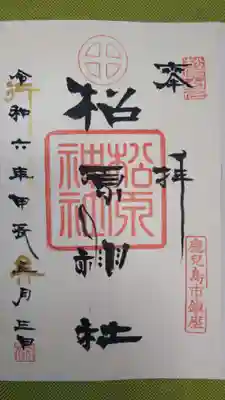 奉拝
松原神社
松原神社
鹿児島市鎮座
令和六年甲辰五月三日